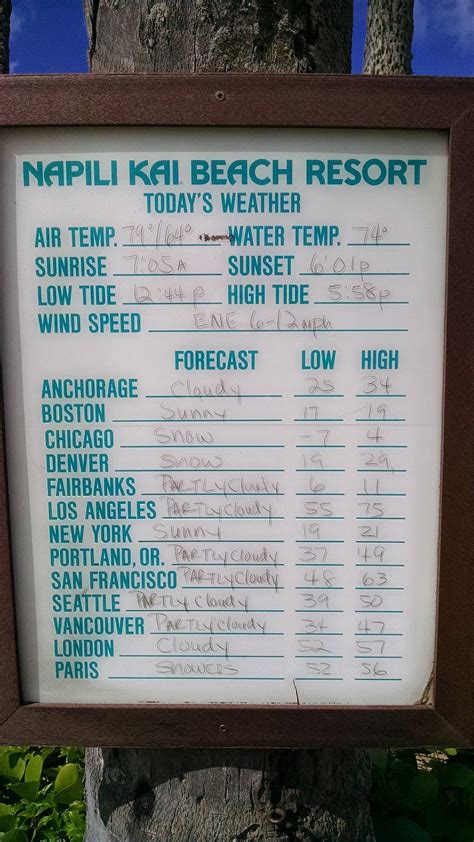 NAPILI KAI BEACH RESORT
TODAY'S WEATHER
AIR TEMP. 79°/64° WATER TEMP. 74°
SUNRISE 7:05A SUNSET 6:01p
LOW TIDE 12:44p HIGH TIDE 5:58p
WIND SPEED ENE 6-12mph
FORECAST LOW HIGH
ANCHORAGE Cloudy 25 34
BOSTON Sunny 17 19
CHICAGO Snow -7 4
DENVER Snow 19 29
FAIRBANKS PARTLY Cloudy 6 11
LOS ANGELES PARTLY Cloudy 55 75
NEW YORK Sunny 19 21
PORTLAND, OR. PARTLY Cloudy 37 49
SAN FRANCISCO PARTLY Cloudy 48 63
SEATTLE PARTLY Cloudy 39 50
VANCOUVER PARTLY Cloudy 34 47
LONDON Cloudy 52 57
PARIS SHOWERS 52 56